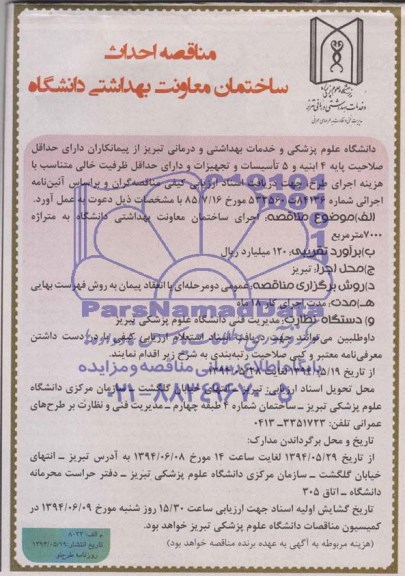 مناقصه احداث
ساختمان معاونت بهداشتی دانشگاه
دانشگاه علوم پزشکی و خدمات بهداشتی و درمانی تبریز از پیمانکاران دارای حداقل
صلاحیت پایه ۴ ابنیه و ۵ تأسیسات و تجهیزات و دارای حداقل ظرفیت خالی متناسب با
هزینه اجرای طرح جهت دریافت اسناد ارزیابی کیفی مناقصه‌گران و براساس آئین‌نامه
اجرائی شماره ۸۴۱۳۶ت۵۳۲۵۶۰ مورخ ۸۵/۷/۱۶ با مشخصات ذیل دعوت به عمل آورد.
الف)موضوع مناقصه: اجرای ساختمان معاونت بهداشتی دانشگاه به متراژ
۷۰۰۰مترمربع
ب)برآورد تقریبی: ۱۲۰ میلیارد ریال
ج)محل اجرا: تبریز
د)روش برگزاری مناقصه: عمومی دومرحله‌ای با انعقاد پیمان به روش فهرست بهایی
هـ)مدت: مدت اجرای کار ۱۸ ماه
و) دستگاه نظارت: مدیریت فنی دانشگاه علوم پزشکی تبریز
داوطلبین می‌توانند جهت دریافت اسناد استعلام ارزیابی کیفی با در دست داشتن
معرفی‌نامه معتبر و کپی صلاحیت رتبه‌بندی به شرح زیر اقدام نمایند.
از تاریخ ۱۳۹۴/۰۵/۱۹ لغایت ۱۳۹۴/۰۵/۲۸
محل تحویل اسناد ارزیابی: تبریز ـ انتهای خیابان گلگشت ـ سازمان مرکزی دانشگاه
علوم پزشکی تبریز ـ ساختمان شماره ۴ طبقه چهارم ـ مدیریت فنی و نظارت بر طرح‌های
عمرانی تلفن: ۳۳۵۱۷۲۳ـ۰۴۱۳
تاریخ و محل برگرداندن مدارک:
از تاریخ ۱۳۹۴/۰۵/۲۹ لغایت ساعت ۱۴ مورخ ۱۳۹۴/۰۶/۰۸ به آدرس تبریز ـ انتهای
خیابان گلگشت ـ سازمان مرکزی دانشگاه علوم پزشکی تبریز ـ دفتر حراست محرمانه
دانشگاه ـ اتاق ۳۰۵
تاریخ گشایش اولیه اسناد جهت ارزیابی ساعت ۱۵/۳۰ روز شنبه مورخ ۱۳۹۴/۰۶/۰۹ در
کمیسیون مناقصات دانشگاه علوم پزشکی تبریز خواهد بود.
(هزینه مربوطه به آگهی به عهده برنده مناقصه خواهد بود)
م الف: ۸۰۲۲
تاریخ انتشار: ۱۳۹۴/۰۵/۱۹
روزنامه طرح‌نو
ParsNamadData
۰۲۱-۸۸۳۴۹۶۷۰-۵